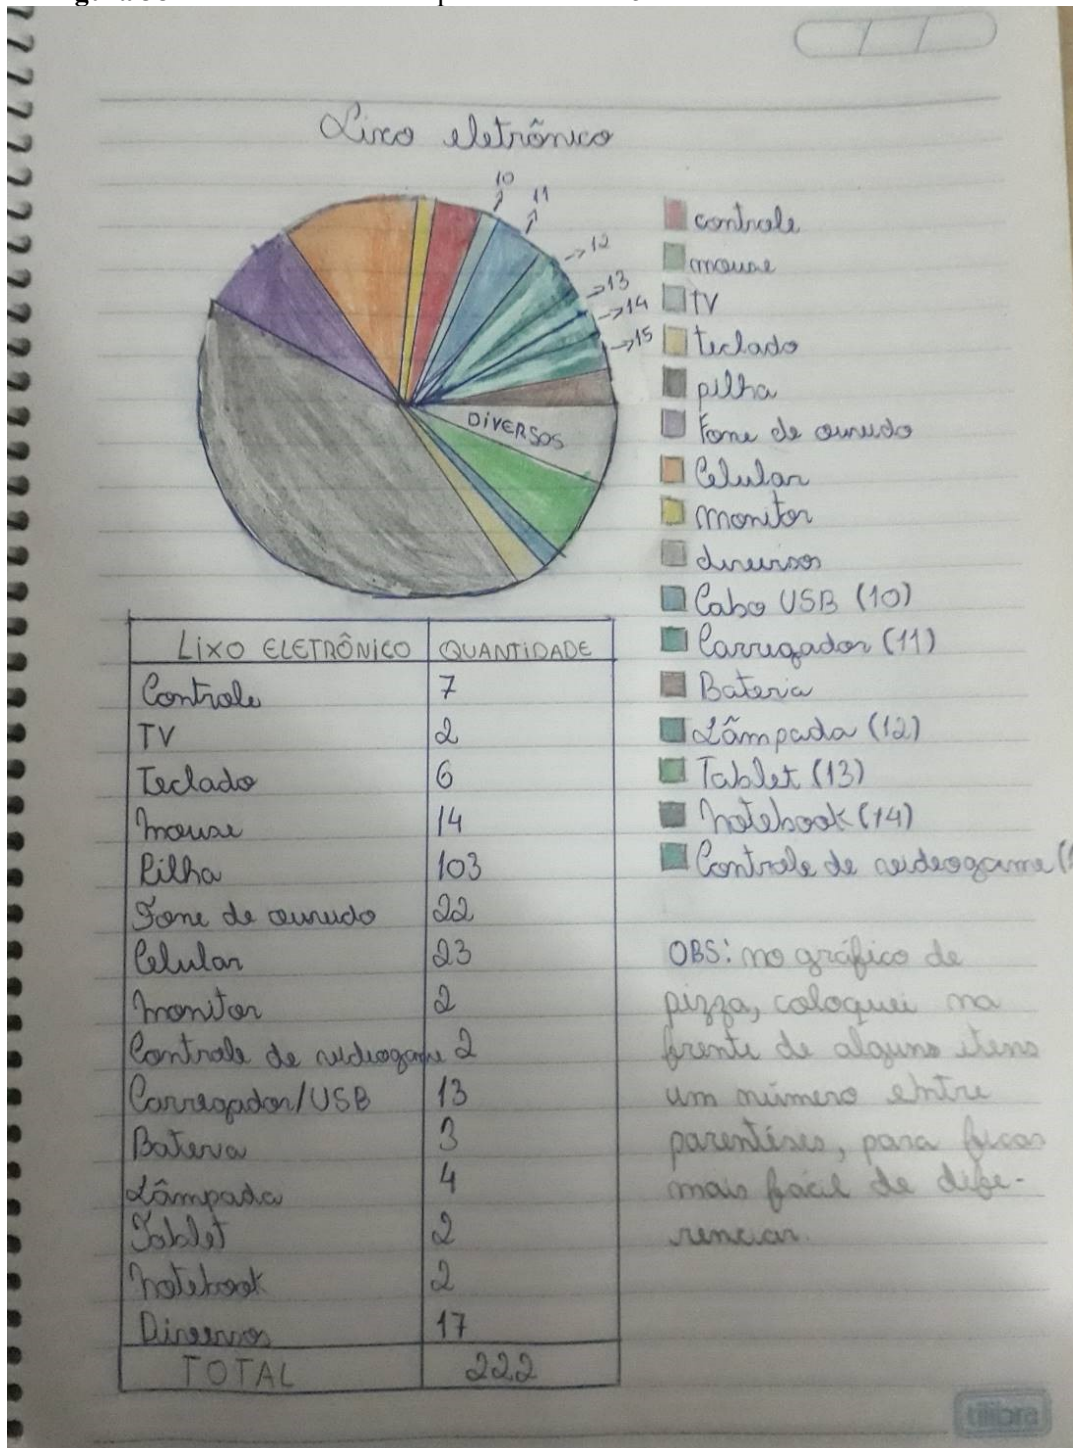 Lixo eletrônico
10
11
12
13
14
15
DIVERSOS
controle
mouse
TV
teclado
pilha
Fone de ouvido
Celular
Monitor
diversos
Cabo USB (10)
Carregador (11)
Bateria
Lâmpada (12)
Tablet (13)
Notebook (14)
Controle de videogame (1
LIXO ELETRÔNICO QUANTIDADE
Controle 7
TV 2
Teclado 6
Mouse 14
Pilha 103
Fone de ouvido 22
Celular 23
Monitor 2
Controle de videogame 2
Carregador/USB 13
Bateria 3
Lâmpada 4
Tablet 2
Notebook 2
Diversos 17
TOTAL 222
OBS: no gráfico de
pizza, coloquei na
frente de alguns itens
um número entre
parentêses, para ficar
mais fácil de dife-
renciar.
tilibra